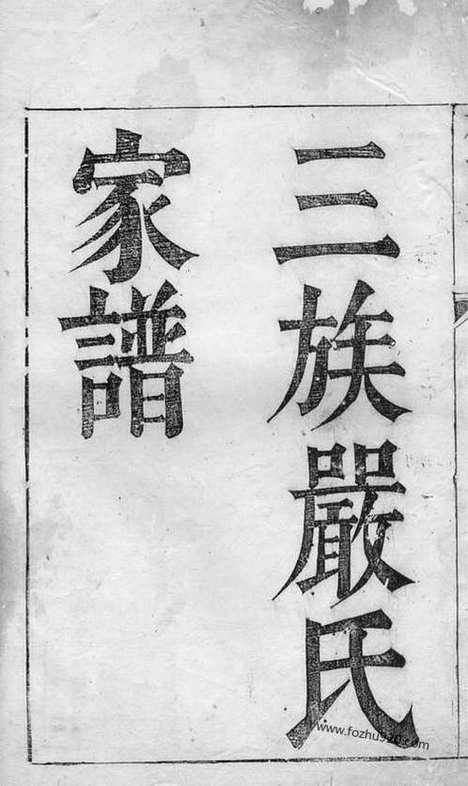 三族嚴氏
家譜
www.fozhu920.com